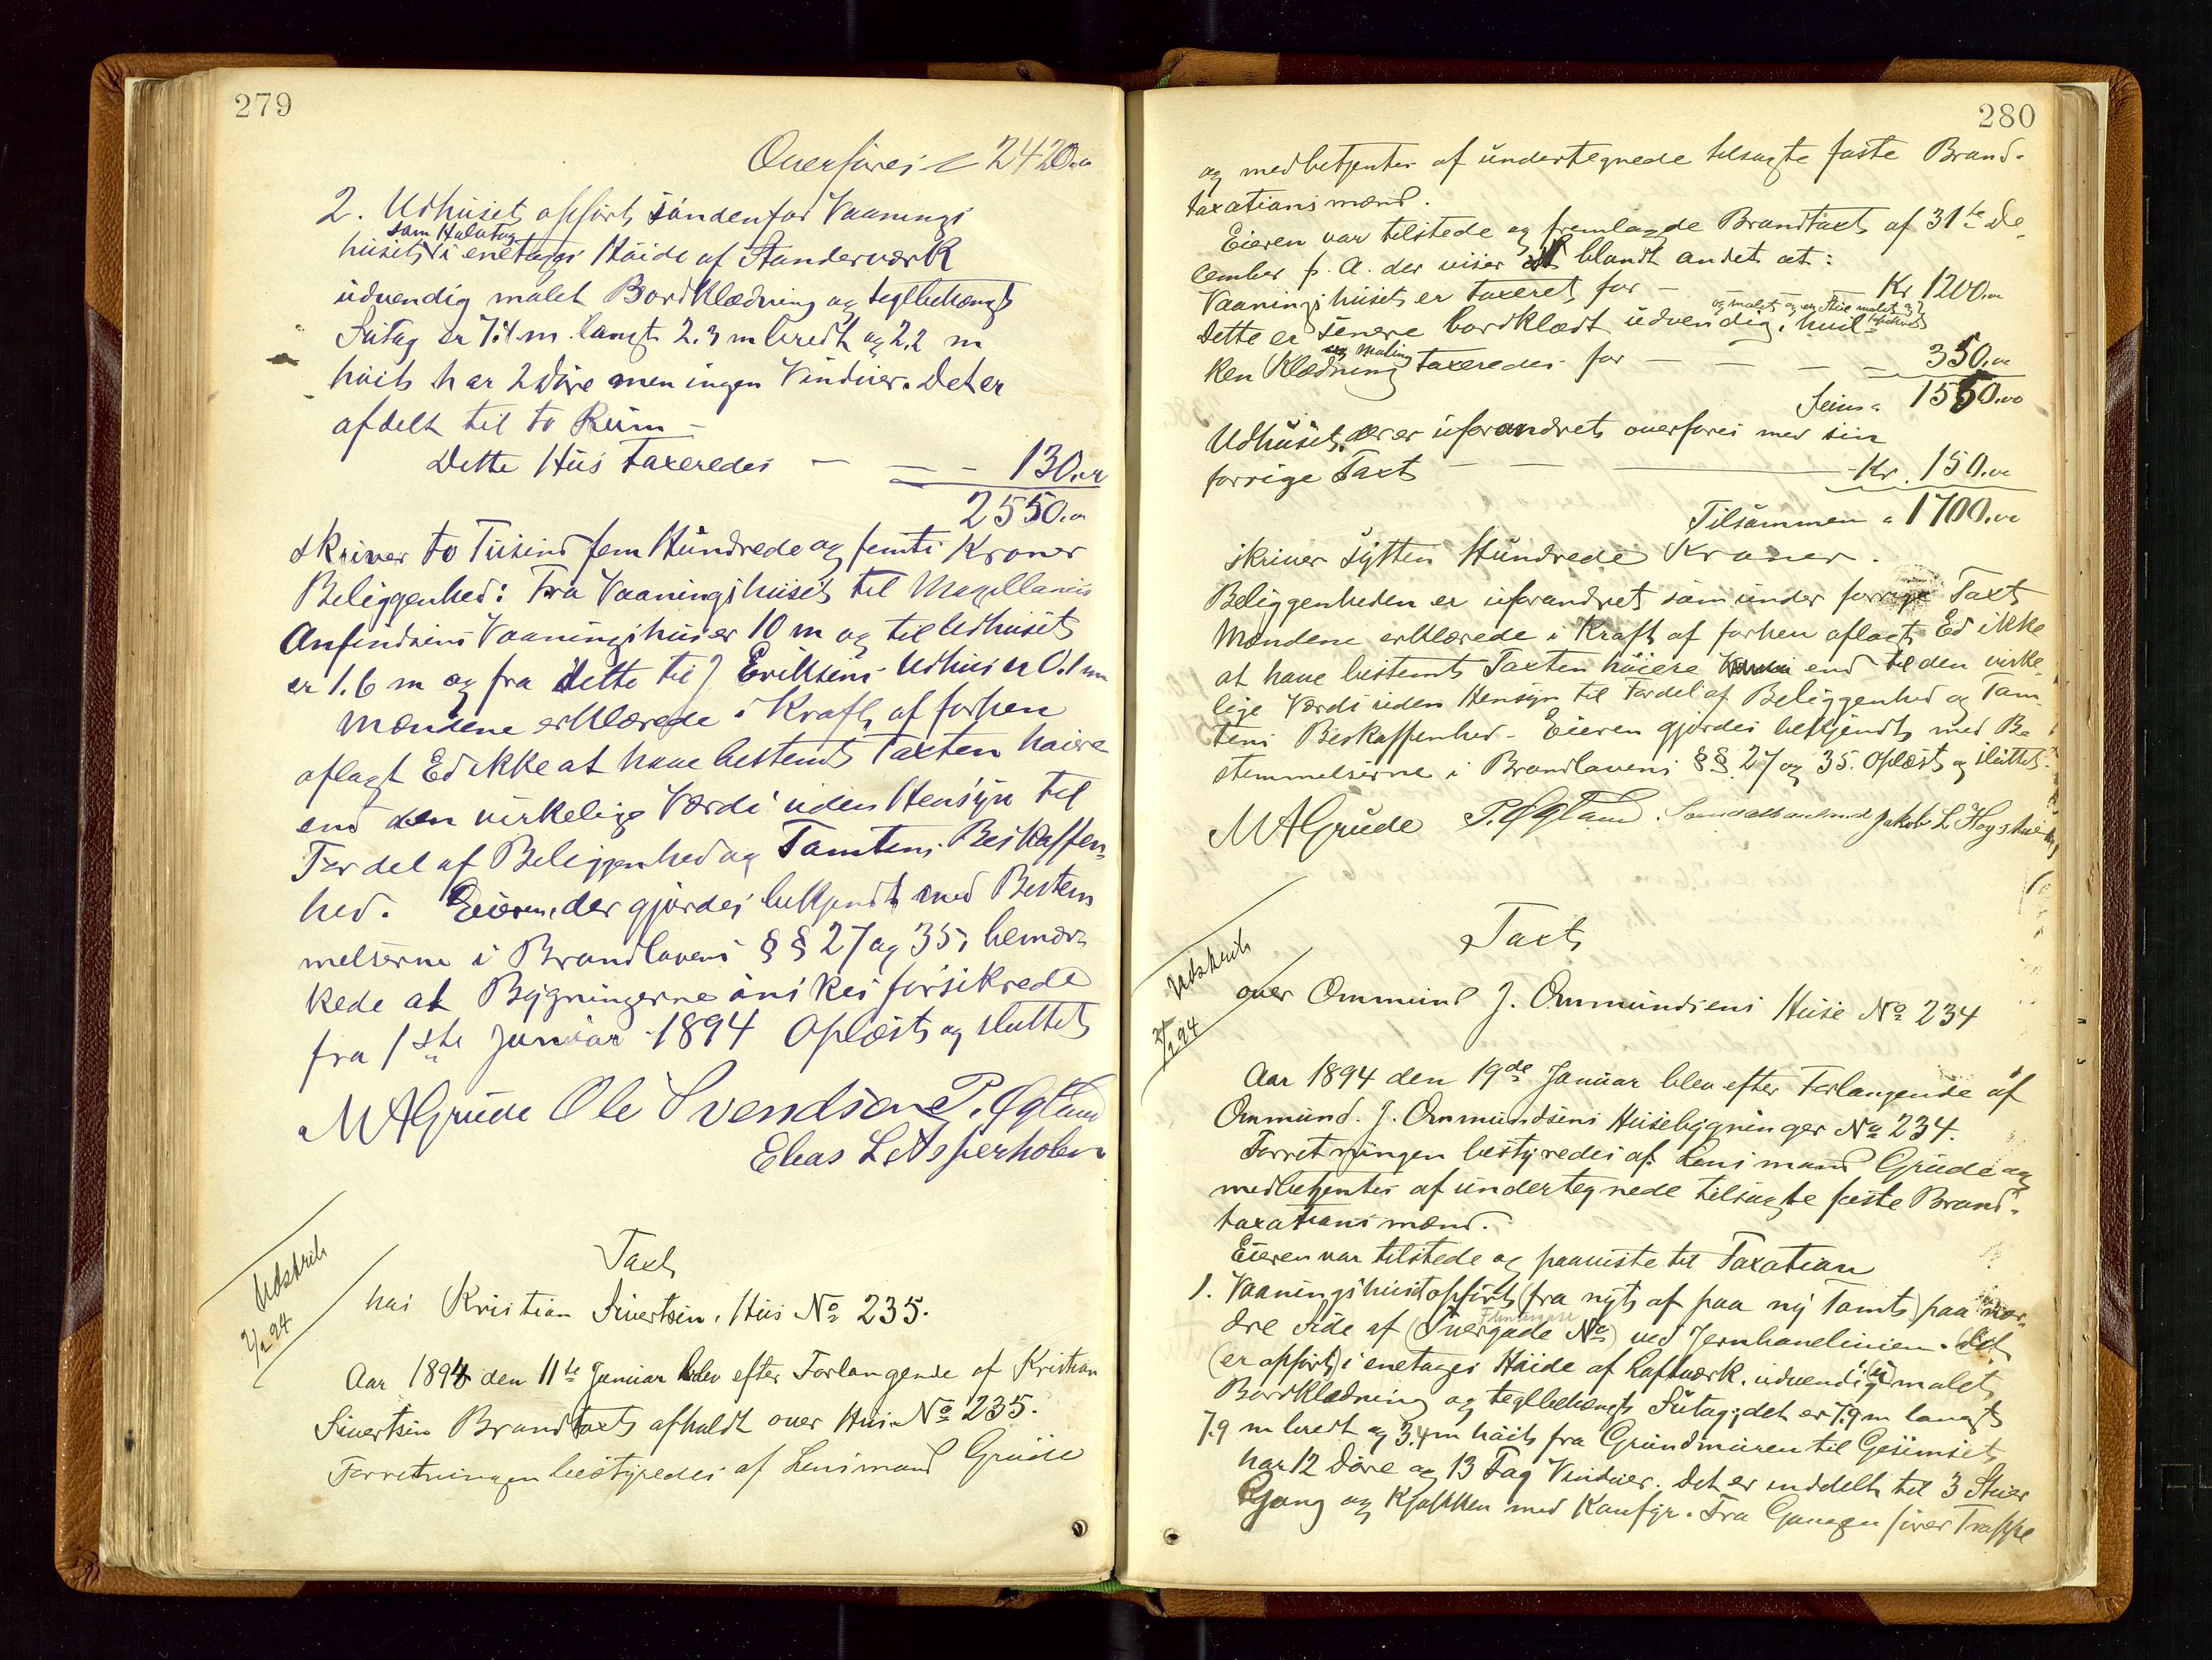 279
Overføres 2420.00
2. Udhuset opført søndenfor Vaanings
som Halvtag
huset i enetages Høide af Standerværk
udvendig malet Bordklædning og teglbehængt
Sutag er 7.4 m. langt 2.3 m bredt og 2.2 m
høit har 2 Døre men ingen Vinduer. Det er
afdelt til to Rum –
Dette Hus taxeredes – – – 130.00
2550.00
skriver to Tusind fem Hundrede og femti Kroner
Beliggenhed: Fra Vaaningshuset til Magellanus
Anfindsens Vaaningshus er 10 m og til Udhuset
er 1.6 m og fra dette til J Eriksens Udhus er 0.1 m
Mændene erklærede i Kraft af forhen
aflagt Ed ikke at have bestemt Taxten høiere
end den virkelige Værdi uden Hensyn til
Fordel af Beliggenhed og Tomtens Beskaffen-
hed. Eieren, der gjordes bekjendt med Bestem
melserne i Brandlovens §§ 27 og 35, bemær-
kede at Bygningerne ønskes forsikrede
fra 1ste Januar 1894 Oplæst og sluttet
MAGrude Ole Svendsen P. Øgland
Elias L Asperholen
Udskrift
2/2 94
Taxt
hos Kristian Sivertsen, Hus No 235.
Aar 1894 den 11te Januar blev efter Forlangende af Kristian
Sivertsen Brandtaxt afholdt over Hus No 235.
Forretningen bestyredes af Lensmand Grude
280
og medbetjentes af undertegnede tilsagte faste Brand-
taxationsmænd.
Eieren var tilstede og fremlagde Brandtaxt af 31te De-
cember f. A. der viser blandt andet at:
Vaaningshuset er taxeret for – Kr 1200.00
og malet og en Stue malet og
Dette er senere bordklædt udvendig, hvil-
og Maling
ken Klædning taxeredes for – – – – 350.00
Sum " 1550.00
Udhuset, der er uforandret overføres med sin
forrige Taxt – – – Kr. 150.00
Tilsammen " 1700.00
skriver sytten Hundrede Kroner.
Beliggenheden er uforandret som under forrige Taxt
Mændene erklærede i Kraft af forhen aflagt Ed ikke
at have bestemt Taxten høiere end til den virke-
lige Værdi uden Hensyn til Fordel af Beliggenhed og Tom-
tens Beskaffenhed – Eieren gjordes bekjendt med Be
stemmelserne i Brandlovens §§ 27 og 35. Oplæst og sluttet.
MAGrude P. Øgland. Jakob L Hogstad
Udskrift
2/2 94
Taxt
over Ommund J. Ommundsens Huse No 234
Aar 1894 den 19de Januar blev efter Forlangende af
Ommund. J. Ommundsens Husebygninger No 234.
Forretningen bestyredes af Lensmand Grude og
medbetjentes af undertegnede tilsagte faste Brand-
taxationsmænd.
Eieren var tilstede og paaviste til Taxation
1. Vaaningshuset opført (fra nyt af paa ny Tomt) paa nor-
dre Side af (Tvergade No) ved Jernbanelinien. Det
(er opført) i enetages Høide af Laftværk. udvendig malet
Bordklædning og teglbehængt Sutag; det er 7.9 m langt
7.9 m bredt og 3.4 m høit fra Grundmuren til Gesimset
har 12 Døre og 13 Fag Vinduer. Det er inddelt til 3 Stuer
Gang og Kjøkken med Komfyr. Fra Gangen fører Trappe